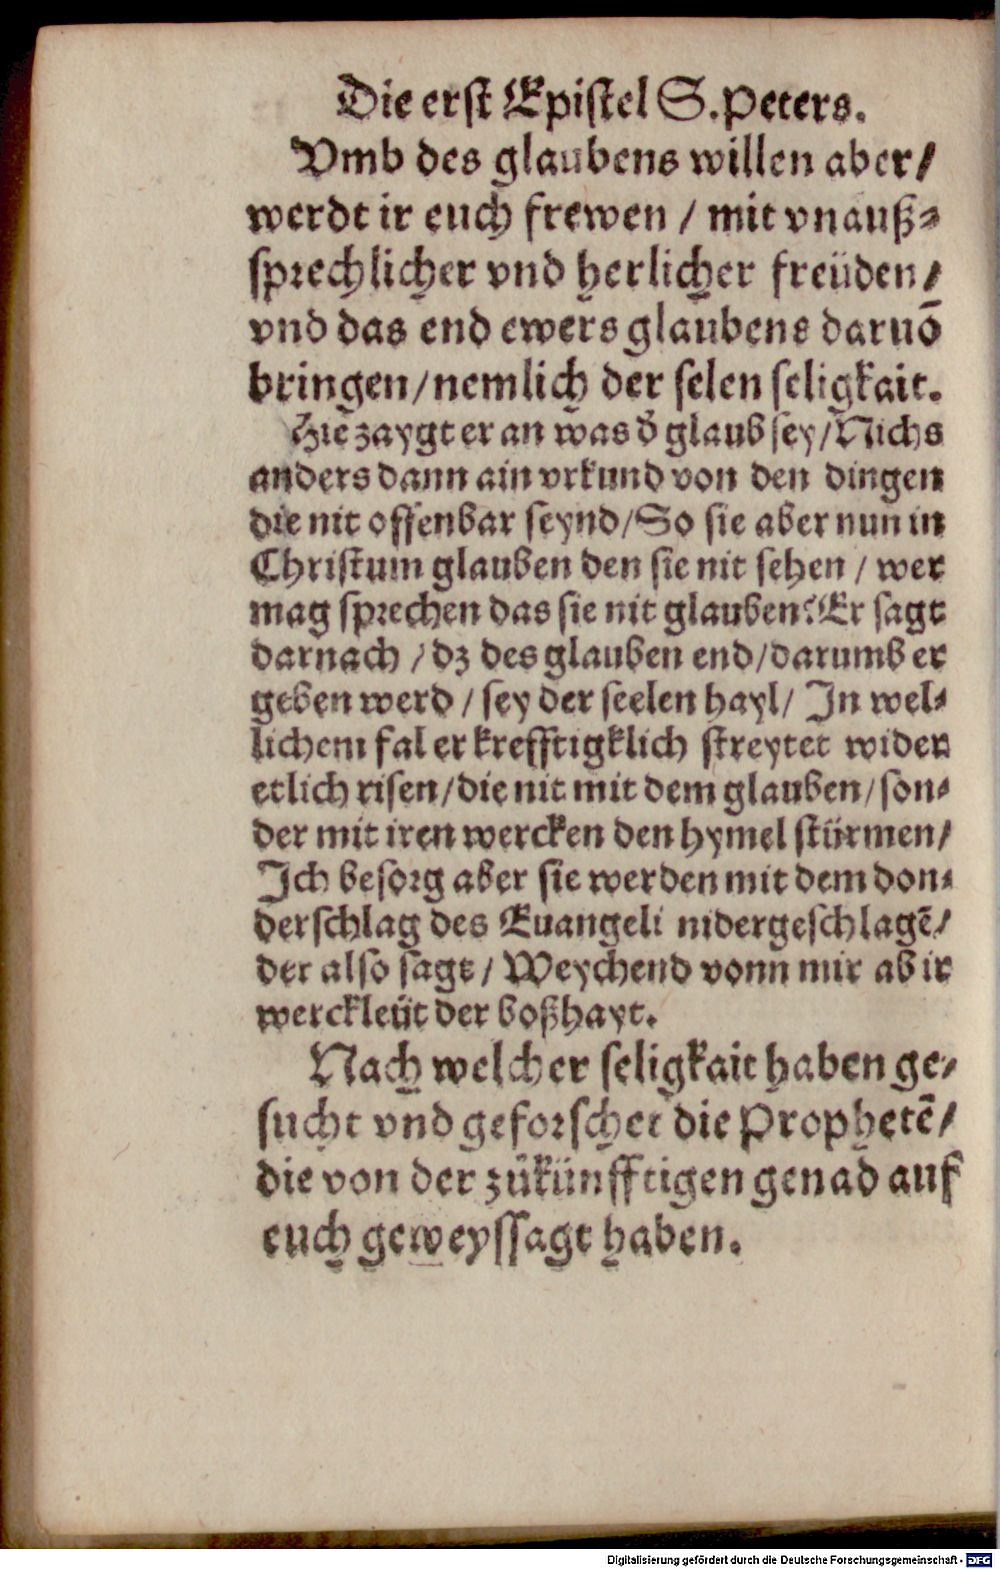 Die erst Epistel S. Peters.
Vmb des glaubens willen aber/
werdt ir euch frewen / mit vnauß⸗
sprechlicher vnd herlicher freüden/
vnd das end ewers glaubens daruō
bringen/nemlich der selen seligkait.
Hie zaygt er an was d̕ glaub sey/Nichs
anders dann ain vrkund von den dingen
die nit offenbar seynd/So sie aber nun in
Christum glauben den sie nit sehen / wer
mag sprechen das sie nit glauben? Er sagt
darnach / dz des glauben end/darumb er
geben werd / sey der seelen hayl/ In wel⸗
lichem fal er krefftigklich streytet wider
etlich risen/die nit mit dem glauben/son⸗
der mit iren wercken den hymel stürmen/
Ich besorg aber sie werden mit dem don⸗
derschlag des Euangeli nidergeschlagē/
der also sagt / Weychend vonn mir ab ir
werckleüt der boßhayt.
Nach welcher seligkait haben ge⸗
sucht vnd geforschet die Prophetē/
die von der zůkünfftigen genad auf
euch geweyssagt haben.
Digitalisierung gefördert durch die Deutsche Forschungsgemeinschaft - DFG